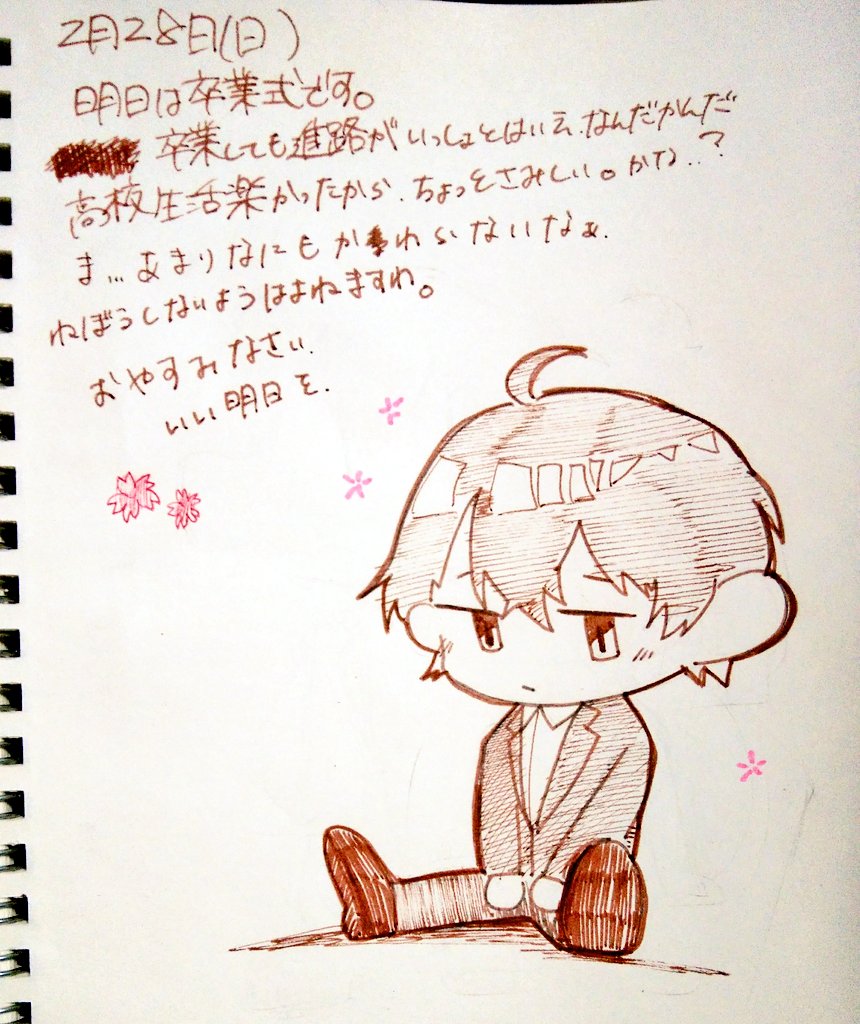 2月28日(日)
明日は卒業式です。
卒業しても進路がいっしょとはいえ、なんだかんだ
高校生活楽かったから、ちょっとさみしい。かな..?
ま...あまりなにもかわらないなぁ.
ねぼうしないようはよねますわ。
おやすみなさい.
いい明日を.